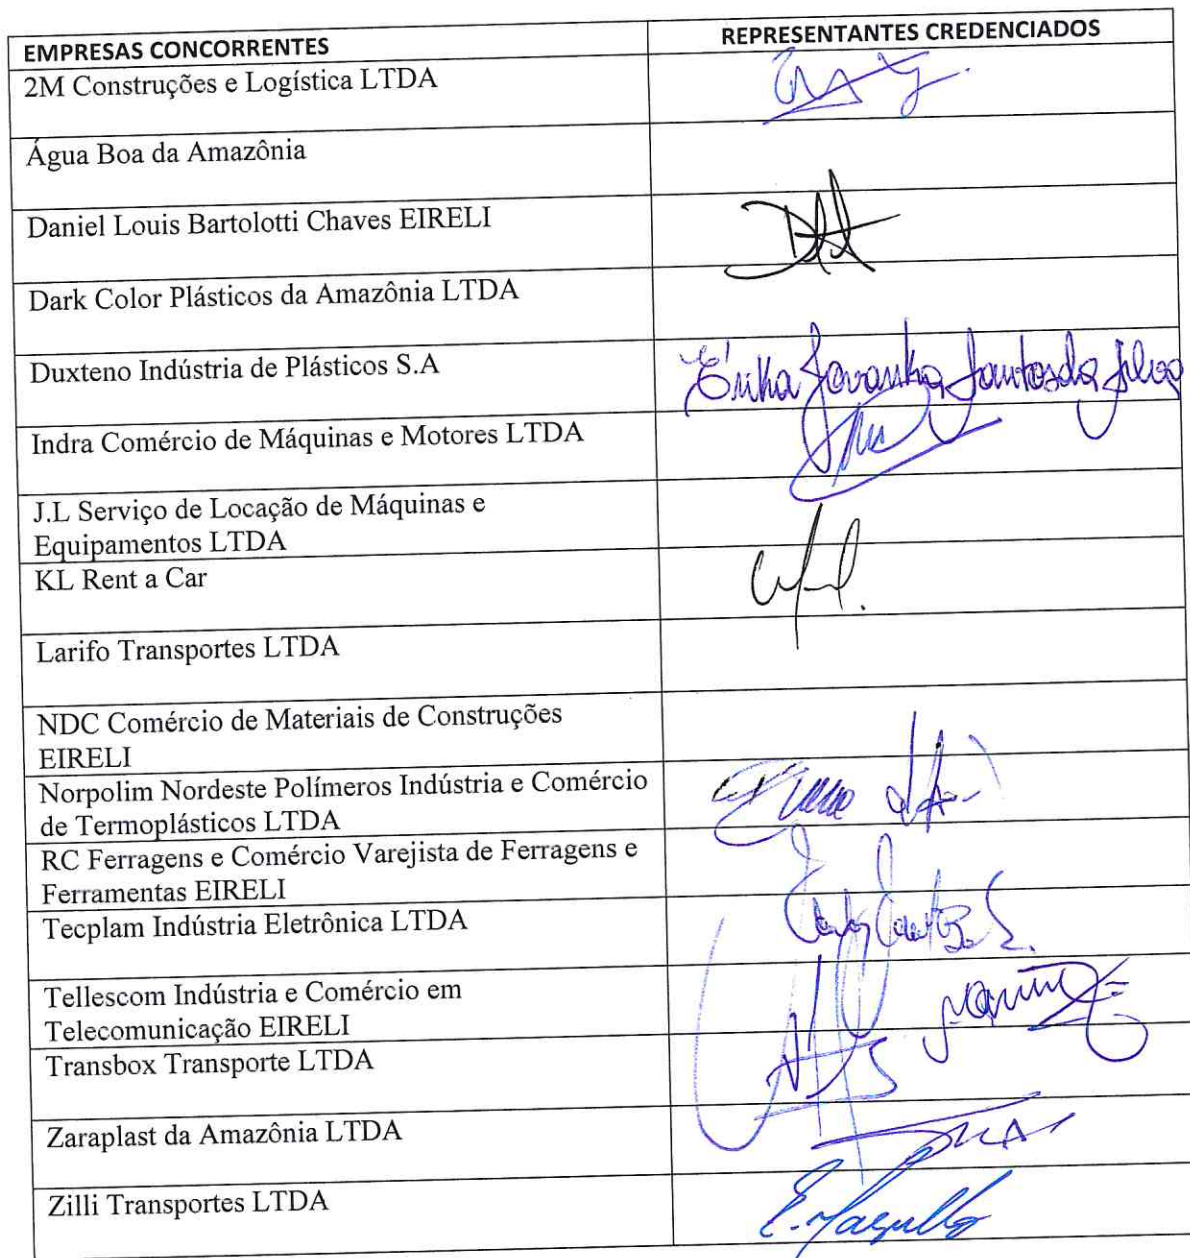 EMPRESAS CONCORRENTES REPRESENTANTES CREDENCIADOS
2M Construções e Logística LTDA
Água Boa da Amazônia
Daniel Louis Bartolotti Chaves EIRELI
Dark Color Plásticos da Amazônia LTDA
Duxteno Indústria de Plásticos S.A Érika Jovanka Santos da Silva
Indra Comércio de Máquinas e Motores LTDA
J.L Serviço de Locação de Máquinas e
Equipamentos LTDA
KL Rent a Car
Larifo Transportes LTDA
NDC Comércio de Materiais de Construções
EIRELI
Norpolim Nordeste Polímeros Indústria e Comércio
de Termoplásticos LTDA
RC Ferragens e Comércio Varejista de Ferragens e
Ferramentas EIRELI
Tecplam Indústria Eletrônica LTDA
Tellescom Indústria e Comércio em
Telecomunicação EIRELI
Transbox Transporte LTDA
Zaraplast da Amazônia LTDA
Zilli Transportes LTDA